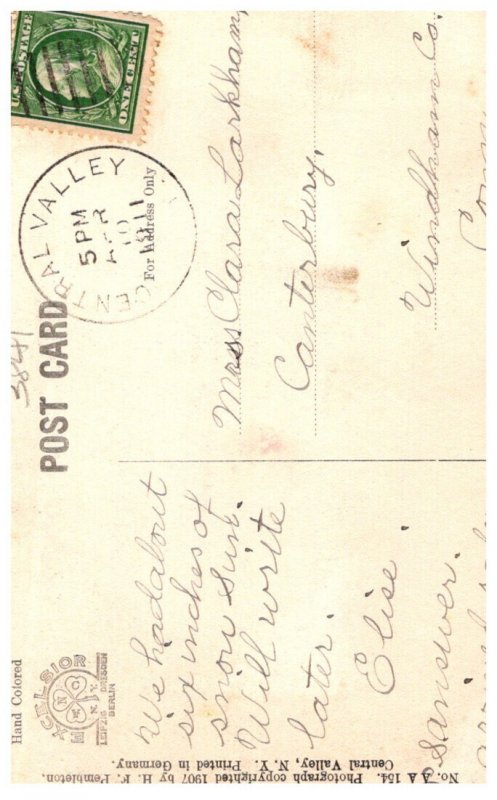 Hand Colored
EXCELSIOR
N. Y.
LEIPZIG DRESDEN
BERLIN
POST CARD
3841
U.S. POSTAGE
ONE CENT
CENTRAL VALLEY
5 PM
APR
10
1911
For Address Only
We had about
six inches of
snow Sun.
Will write
later.
Elise.
answer.
Miss Clara Larkham,
Canterbury,
Windham Co.
Conn
No. A A 154. Photograph copyrighted 1907 by H. F. Pembleton.
Central Valley, N. Y. Printed in Germany.